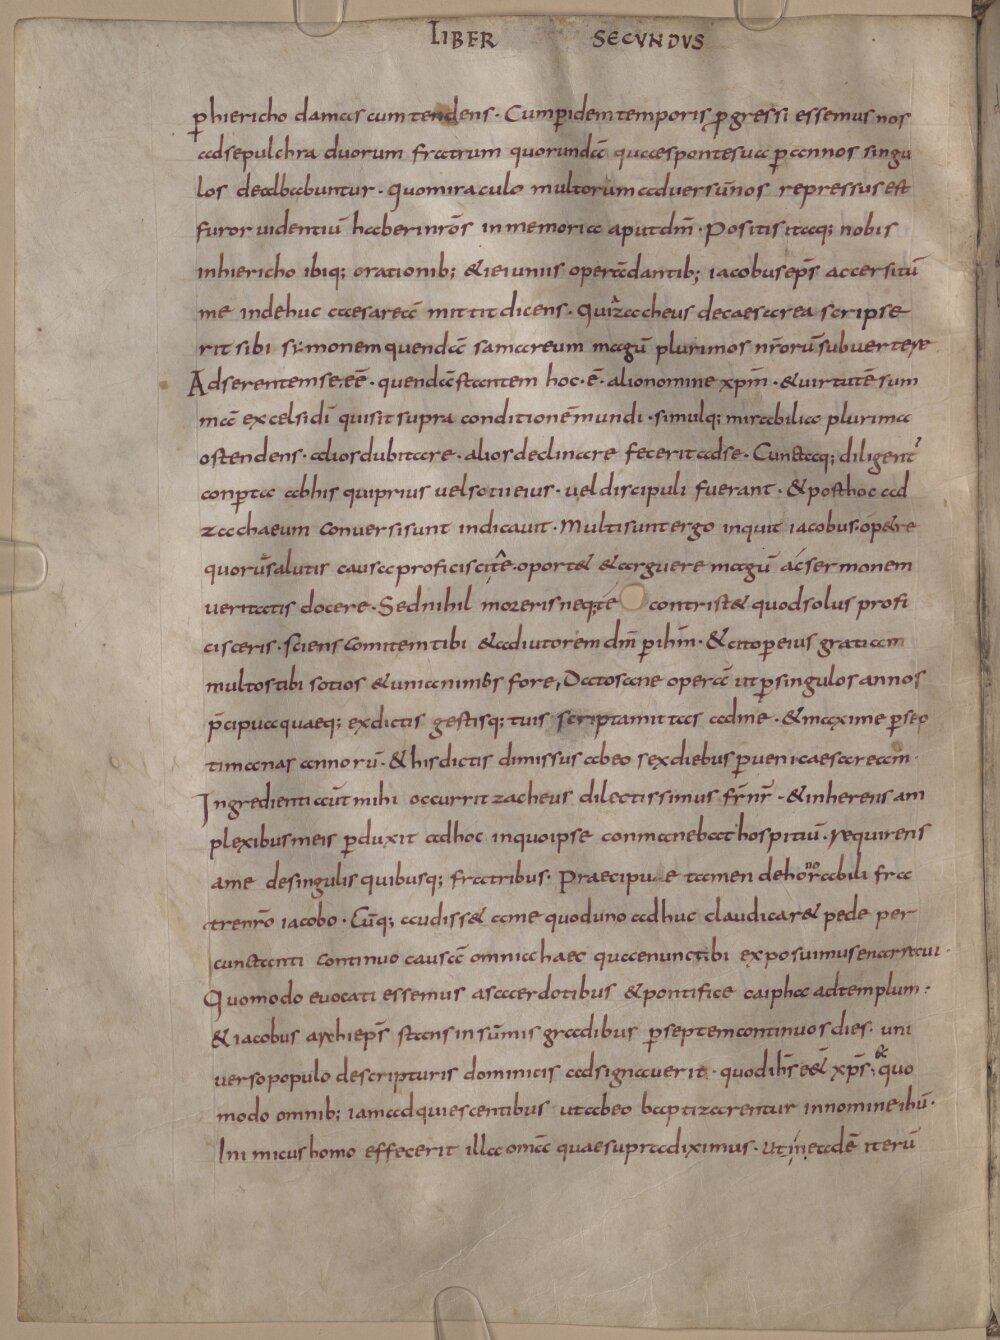 LIBER SECUNDUS
p̲ hiericho damascum tendens. Cum p̲ idem temporis p̲gressi essemus nos
ad sepulchra duorum fratrum quorundā quae sponte sua p̲ annos singu
los dealbabuntur. quo miraculo multorum aduersū nos repressus est
furor uidentiū haberi nr̄os in memoria aput dm̄. Positis itaq; nobis
in hiericho ibiq; orationib; & ieiuniis operā dantib; iacobus eps̄ accersitū
me inde huc caesareā mittit dicens. quia zaccheus de caesarea scripse
rit sibi symonem quendā samareum magū plurimos nr̄orū subuertere
Adserentem se eē. quendā stantem hoc .ē. alio nomine xpm̄. & uirtutē sum
mā excelsi dī qui sit supra conditionē mundi. simulq; mirabilia plurima
ostendens. alios dubitare. alios declinare fecerit ad se. Cunctaq; diligent̄
conp̲ta ab his qui prius uel sotii eius. uel discipuli fuerant. & post hoc ad
zacchaeum conuersi sunt indicauit. Multi sunt ergo inquit iacobus. o petre
quorū salutis causa proficisci tē. oport& & arguere magū ac sermonem
ueritatis docere. Sed nihil moreris neq; te contrist& quod solus profi
cisceris. sciens comitem tibi & adiutorem dm̄ p̲ ihm̄. & cito p̲ eius gratiam
multos tibi sotios & unianimes fore, Dato sane operā ut p̲ singulos annos
p̄cipua quaeq; ex dictis gestisq; tuis scripta mittas ad me. & maxime p̲ sep
timanas annorū. & his dictis dimissus ab eo sex diebus p̲ueni caesaream.
Ingredienti aūt mihi occurrit zacheus dilectissimus fr̄ nr̄. & inherens am
plexibus meis p̲duxit ad hoc in quo ipse conmanebat hospitiū. requirens
a me de singulis quibusq; fratribus. Praecipue tamen de honorabili fra
tre nr̄o iacobo. Cūq; audiss& a me quod uno adhuc claudicar& pede per
cunctanti continuo causā omnia haec quae nunc tibi exposuimus enarraui.
Quomodo euocati essemus a sacerdotibus & pontifice caipha ad templum.
& iacobus archieps̄ stans in sūmis gradibus p̲ septem continuos dies. uni
uerso populo de scripturis dominicis adsignauerit. quod ihs̄ e& xps̄. & quo
modo omnib; iam adquiescentibus ut ab eo baptizarentur in nomine ihū.
Inimicus homo effecerit illa omā quae supra diximus. ut in eadē iterū